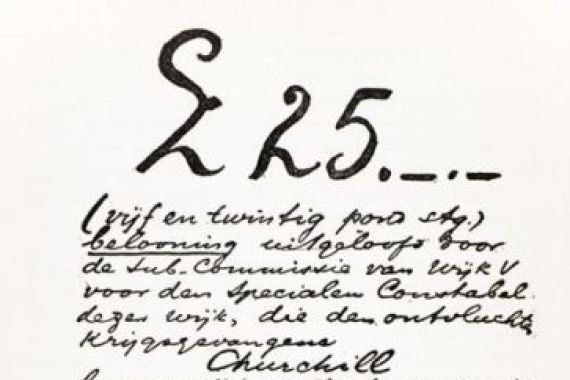 £ 25.–.–
(vijf en twintig pond stg.)
belooning uitgeloofd door
de Sub-Commissie van Wijk V
voor den Specialen Constabel
dezer wijk, die den ontvluchte
Krijgsgevangene
Churchill